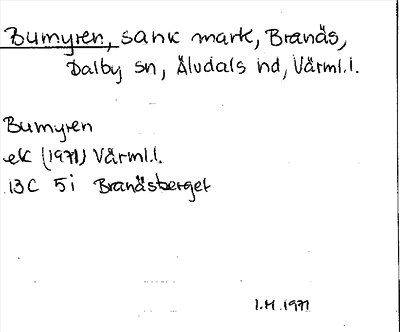 Bumyren, sank mark, Branäs,
Dalby sn, Älvdals hd, Värml.l.
Bumyren
ek (1971) Värml.l.
13C 5i Branäsberget
I.H. 1971